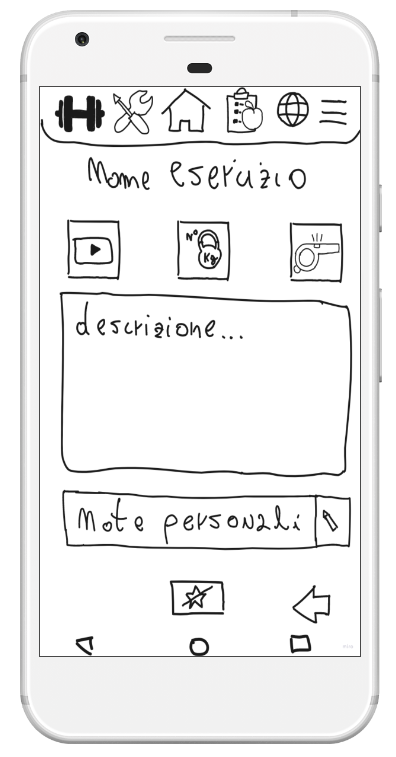 Nome esercizio
N° Kg
descrizione...
Note personali